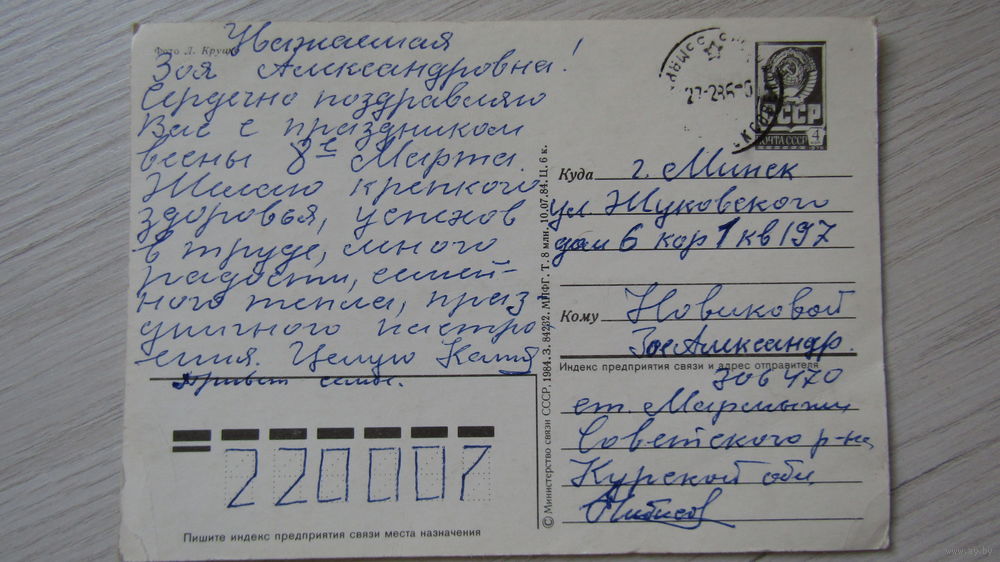 Фото Л. Круцко
Уважаемая
Зоя Александровна!
Сердечно поздравляю
Вас с праздником
весны 8е Марта
Желаю крепкого
здоровья, успехов
в труде, много
радости, семей-
ного тепла, праз
дничного настро
ения. Целую Катя
Привет семье.
Пишите индекс предприятия связи места назначения
220007
© Министерство связи СССР, 1984. З. 84232. МПФГ. Т. 8 млн. 10.07.84. Ц. 6 к.
СССР
ПОЧТА СССР 4
Куда г. Минск
ул. Жуковского
дом 6 кор 1 кв 197
Кому Новиковой
Зое Александр.
Индекс предприятия связи и адрес отправителя
306470
ст. Мармыжи
Советского р-на
Курской обл.
www.ay.by